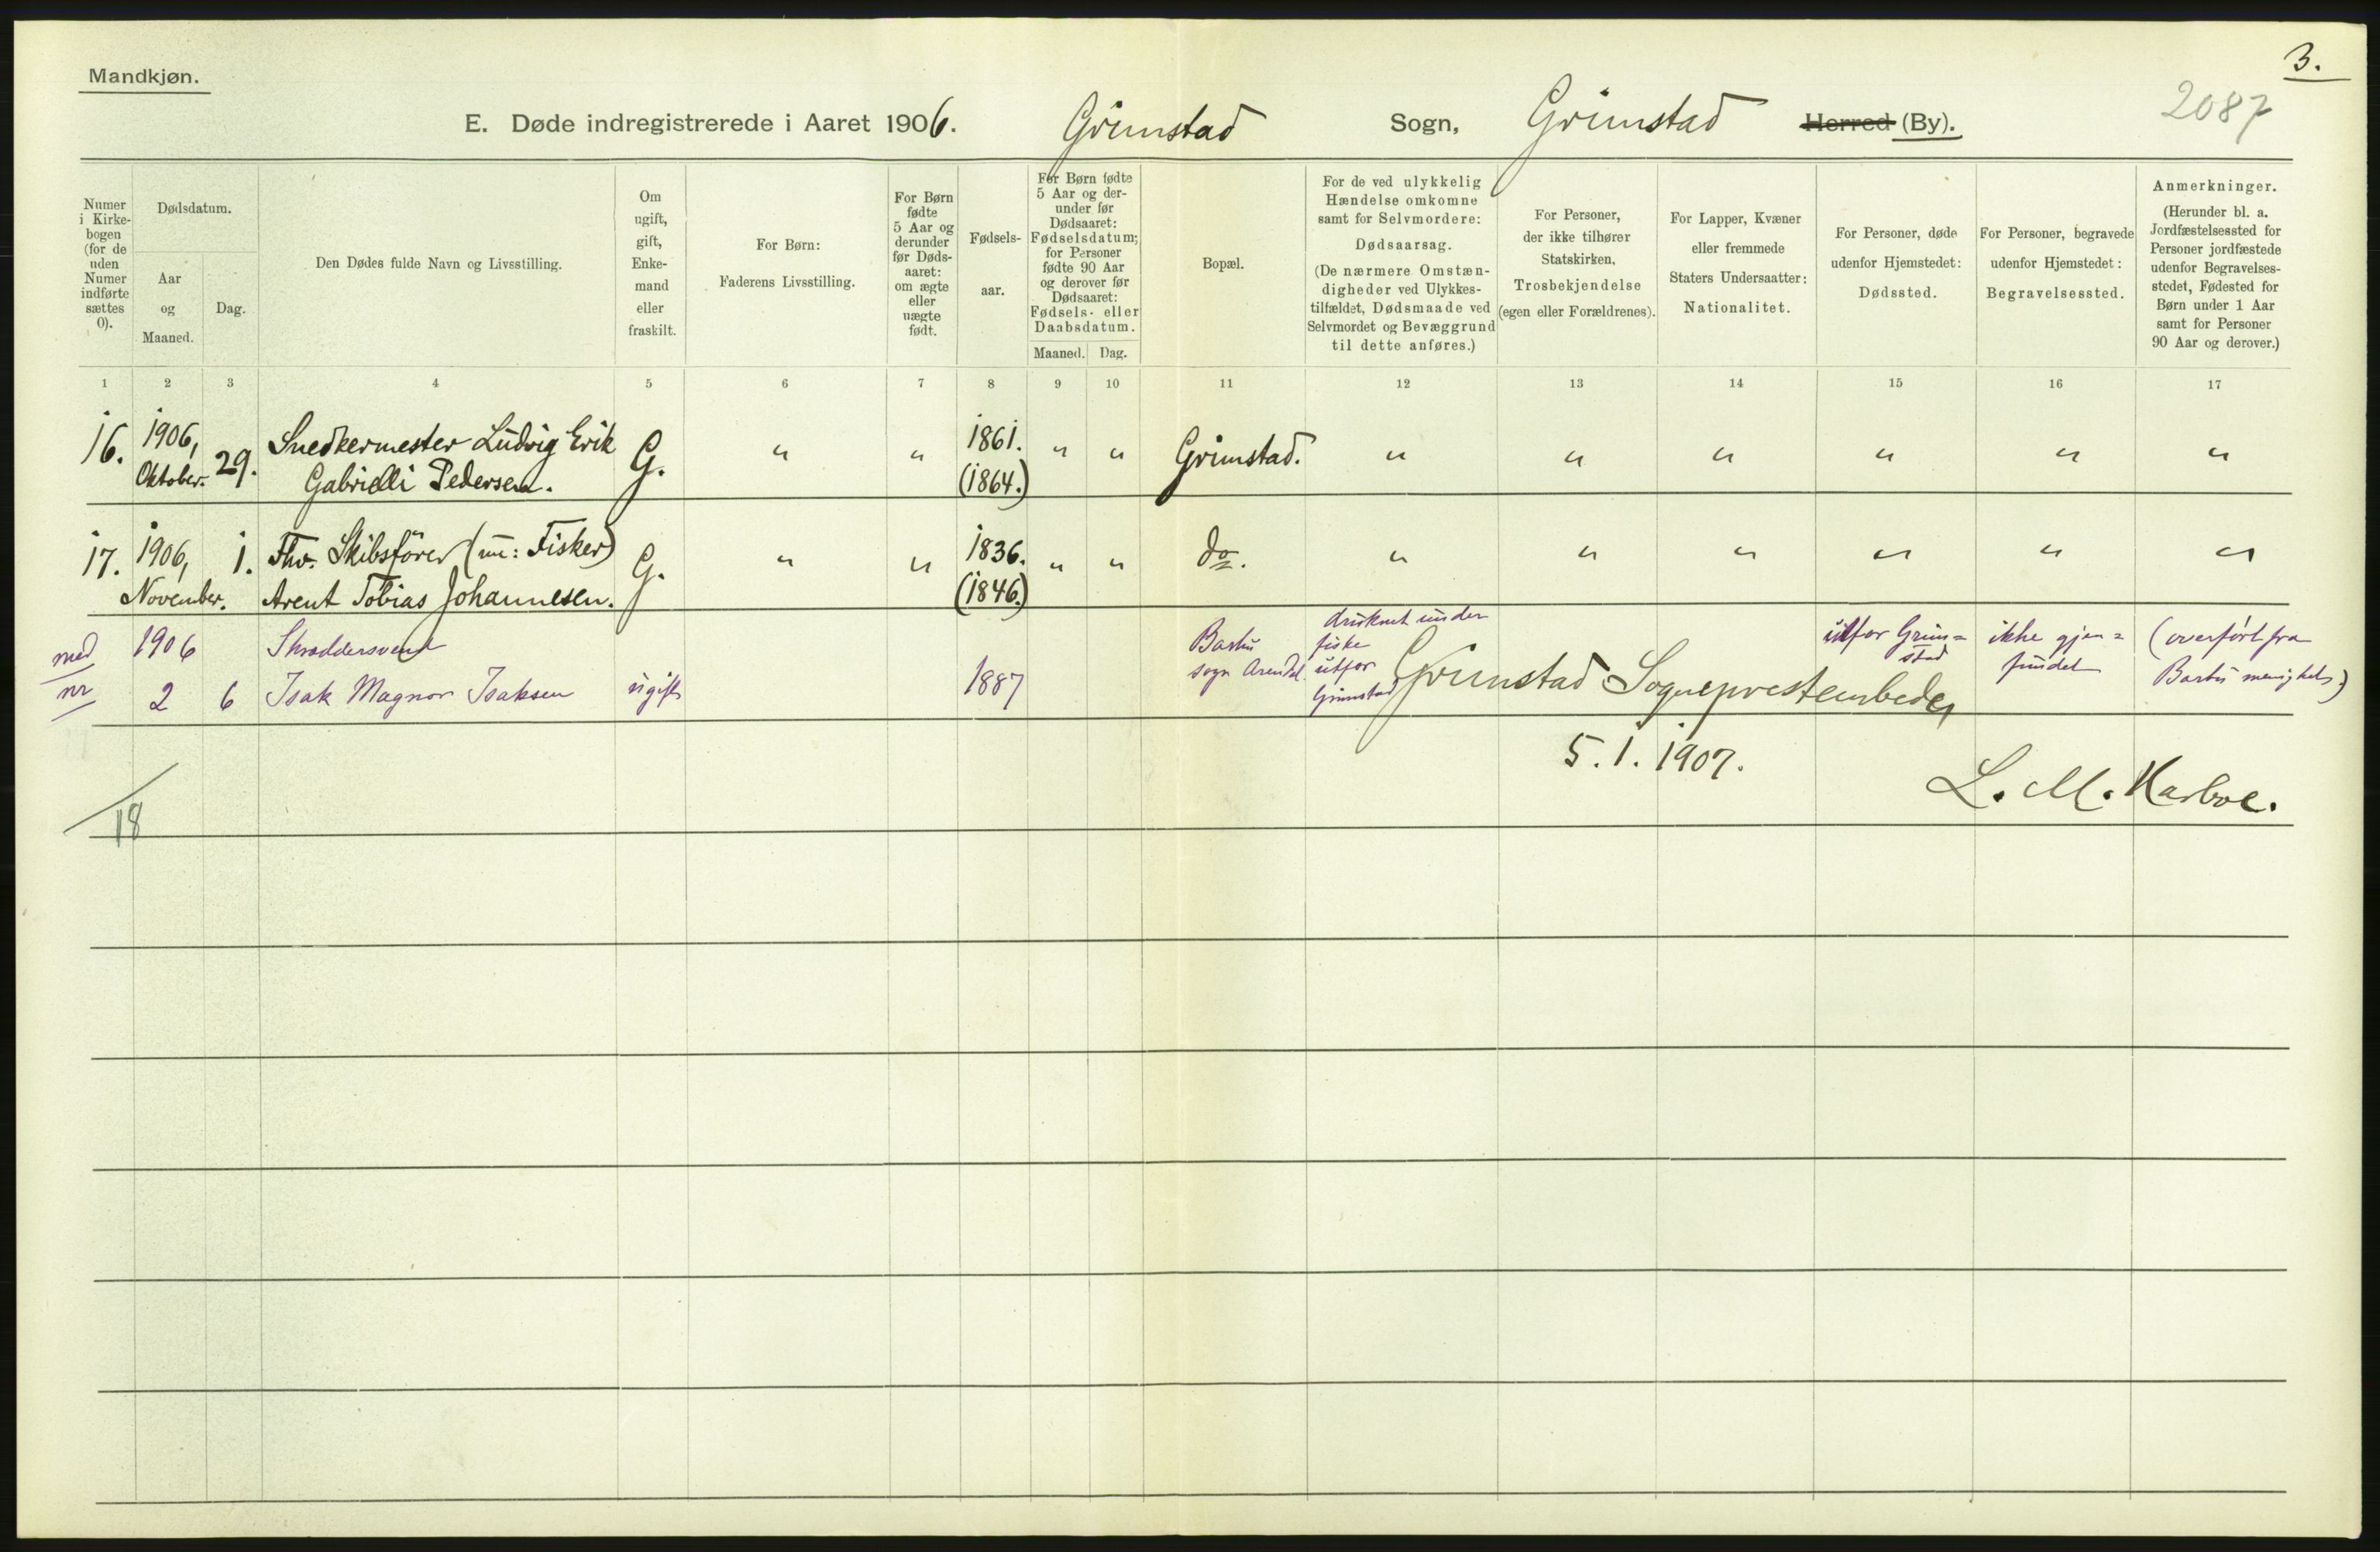 3.
Mandkjøn.
2087
E. Døde indregistrerede i Aaret 1906. Grimstad Sogn, Grimstad Herred (By).
Numer
i Kirke-
bogen
(for de
uden
Numer
indførte
sættes
0).
Dødsdatum.
Aar
og
Maaned.
Dag.
Den Dødes fulde Navn og Livsstilling.
Om
ugift,
gift,
Enke-
mand
eller
fraskilt.
For Børn:
Faderens Livsstilling.
For Børn
fødte
5 Aar og
derunder
før Døds-
aaret:
om ægte
eller
uægte
født.
Fødsels-
aar.
For Børn fødte
5 Aar og der-
under før
Dødsaaret:
Fødselsdatum;
for Personer
fødte 90 Aar
og derover før
Dødsaaret:
Fødsels- eller
Daabsdatum.
Maaned. Dag.
Bopæl.
For de ved ulykkelig
Hændelse omkomne
samt for Selvmordere:
Dødsaarsag.
(De nærmere Omstæn-
digheder ved Ulykkes-
tilfældet, Dødsmaade ved
Selvmordet og Bevæggrund
til dette anføres.)
For Personer,
der ikke tilhører
Statskirken,
Trosbekjendelse
(egen eller Forældrenes).
For Lapper, Kvæner
eller fremmede
Staters Undersaatter:
Nationalitet.
For Personer, døde
udenfor Hjemstedet:
Dødssted.
For Personer, begravede
udenfor Hjemstedet:
Begravelsessted.
Anmerkninger.
(Herunder bl. a.
Jordfæstelsessted for
Personer jordfæstede
udenfor Begravelses-
stedet, Fødested for
Børn under 1 Aar
samt for Personer
90 Aar og derover.)
1 2 3 4 5 6 7 8 9 10 11 12 13 14 15 16 17
16. 1906, 29. Snedkermester Ludvig Erik G. " " 1861. " " Grimstad. " " " " " "
Oktober. Gabrielli Pedersen. (1864.)
17. 1906, 1. Fhv. Skibsfører (nu: Fisker) G. " " 1836. " " do. " " " " " "
November. Arent Tobias Johannesen. (1846.)
med 1906 Skræddersvend Barbu druknet under utfor Grim= ikke gjen= (overført fra
fiske stad
nr 2 6 Isak Magnor Isaksen ugift 1887 sogn Arendal. utfor fundet Barbu menighet)
Grimstad
Grimstad Sogneprestembede,
5. 1. 1907.
L. M. Harboe.
18